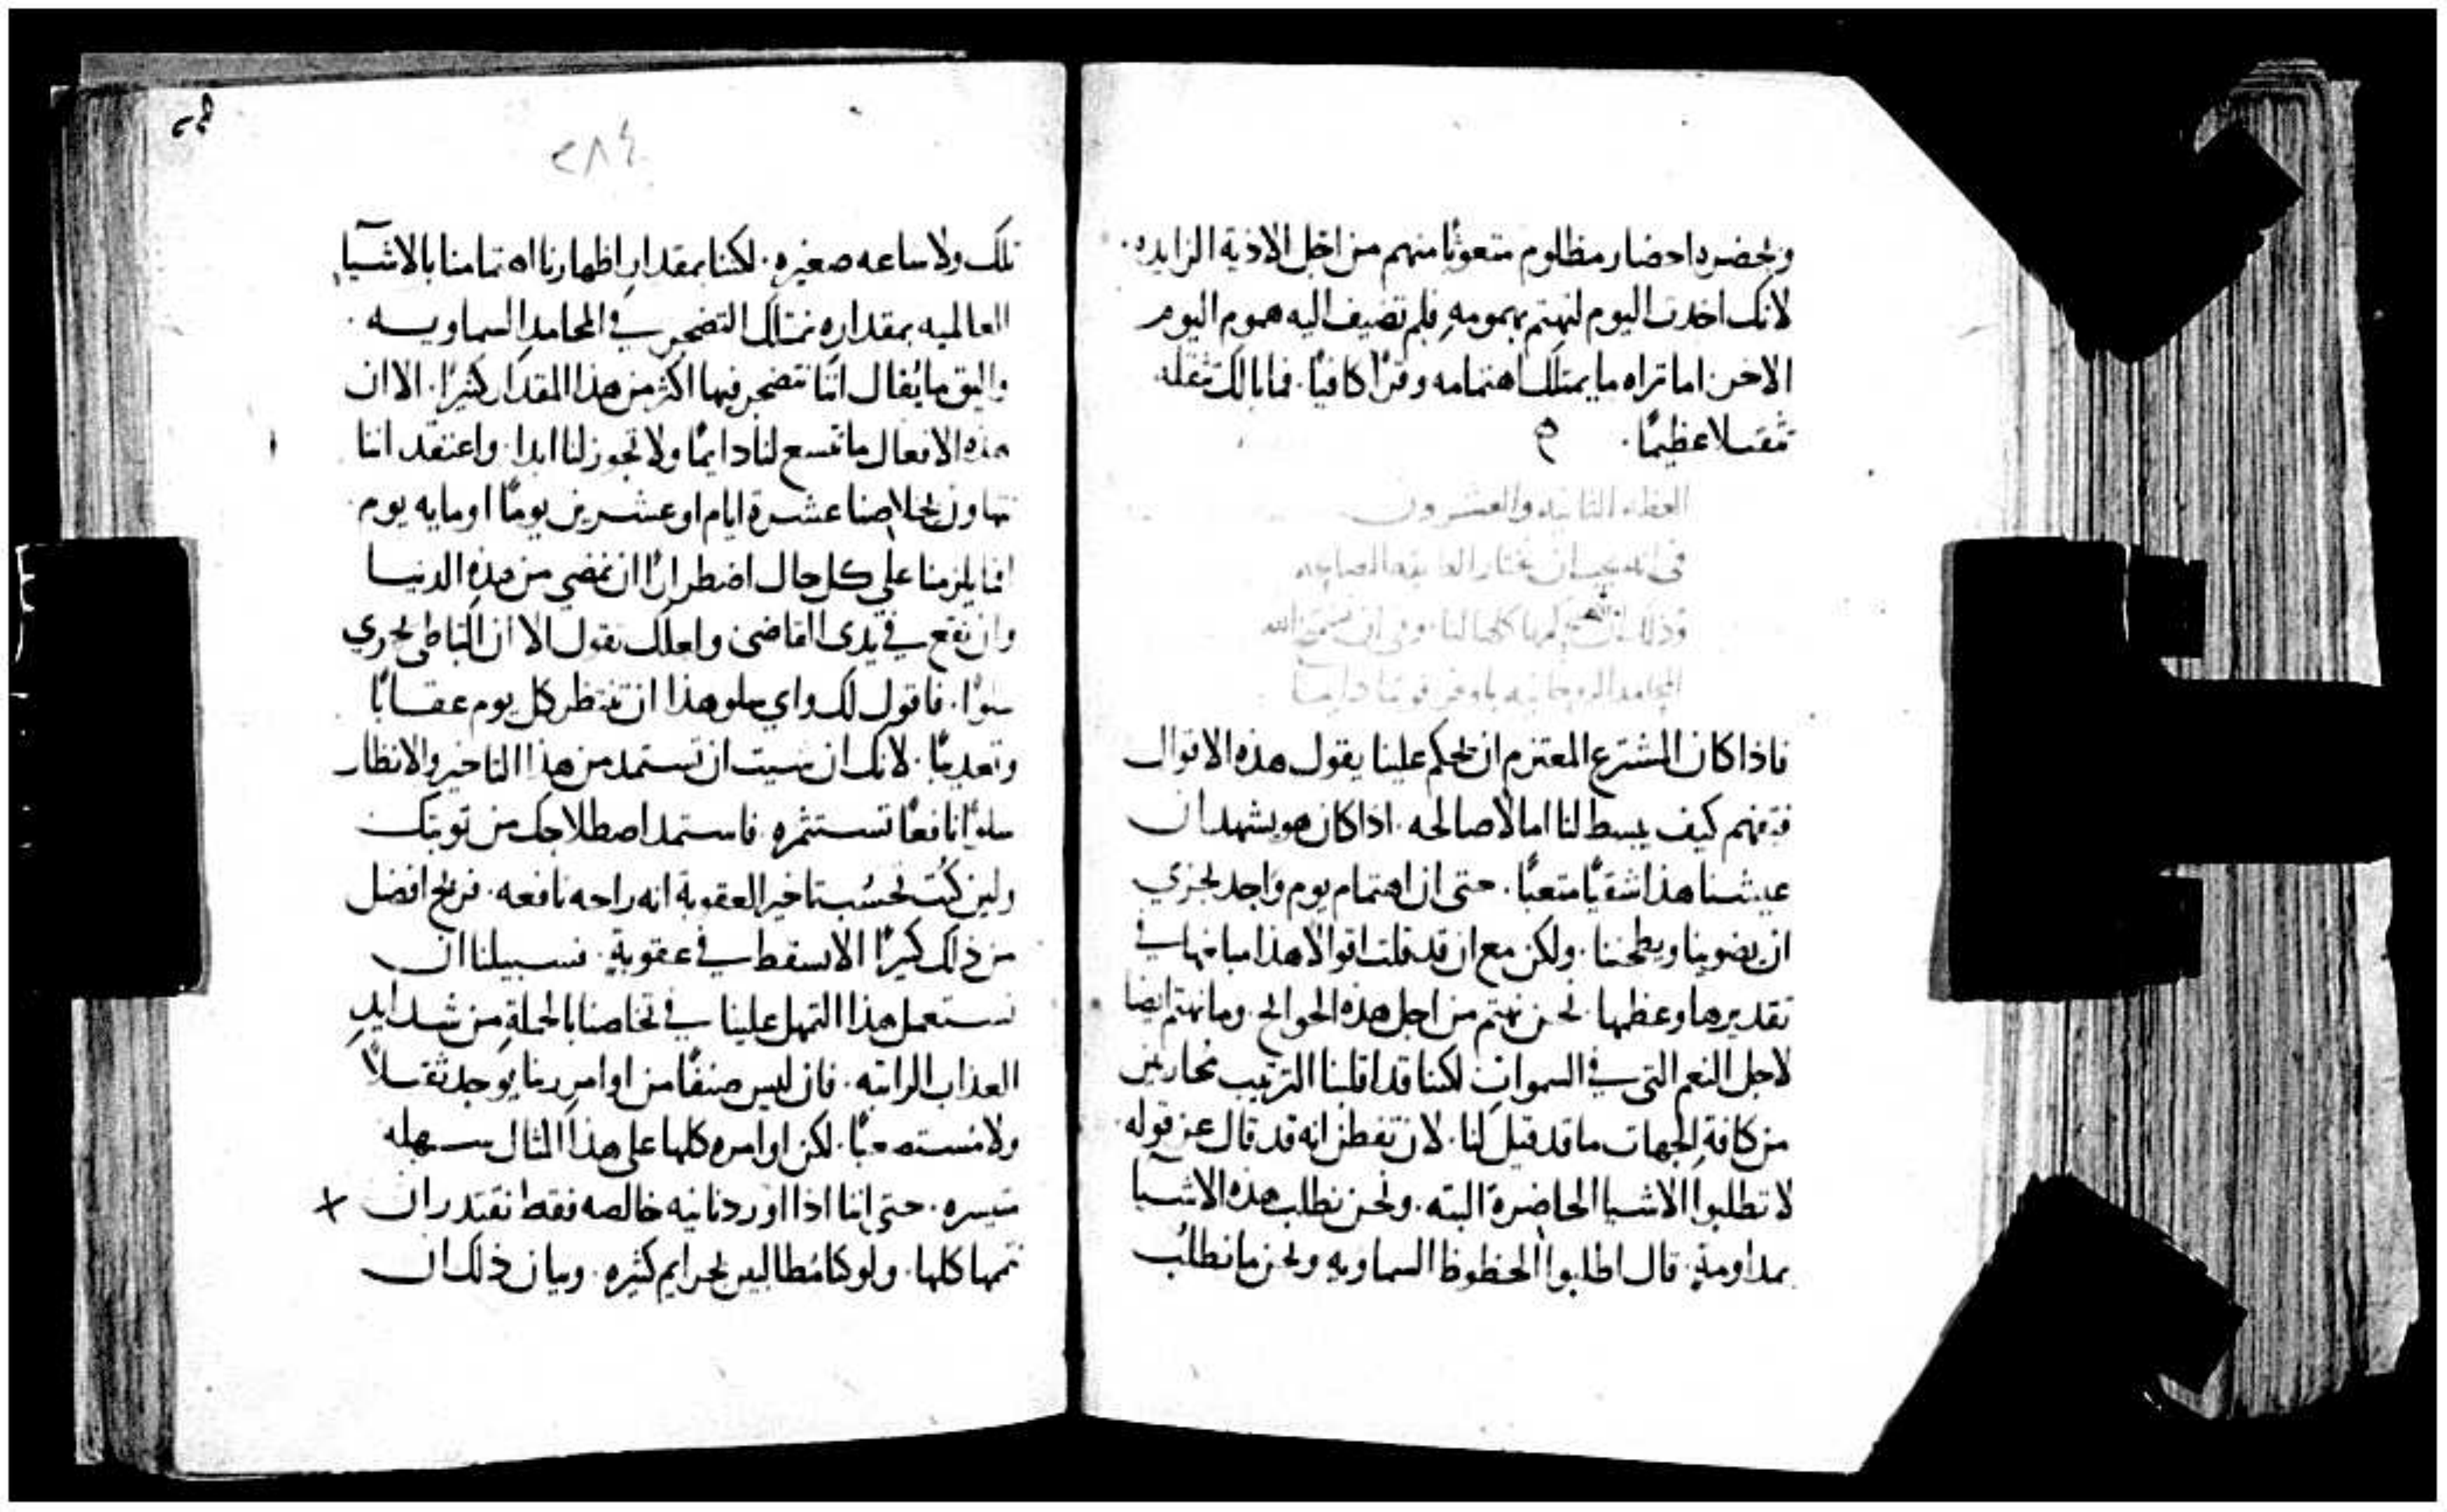 ويحضره احضار مظلوم متعوبًا منهم من اجل الاذية الزايده.
لانك اخدت اليوم لتهتم بهمومهِ فلم تضيف اليه هموم اليوم
الاخر. اما تراه ما يمتلك اهتمامه وقرًا كافيًا. فما بالك تثقله
ثقلا عظيمًا.
العظه الثانيه والعشرون
في انه يجب ان نختار
وذلك كلها لنا. وفي ان الله
المحامد الروحانيه باوفر دايمًا
فاذا كان المشترع المعتزم ان يحكم علينا يقول هذه الاقوال
فتفهم كيف يبسط لنا امالا صالحه. اذا كان هو يشهد ان
عيشنا هذا شقيًا متعبًا. حتى ان اهتمام يوم واحد يجزي
ان يضوينا ويطحننا. ولكن مع ان قد قلت اقوالا هذا مبلغها في
تقديرها وعظمها. نحن نهتم من اجل هذه الحوايج. وما نهتم ايضا
لاجل النعم التي في السموات لكنا قد اقلبنا الترتيب محاربين
من كافةِ الجهات ما قد قيل لنا. لان تفطن انه قد قال عن قوله
لا تطلبوا الاشيا الحاضرة البته. ونحن نطلب هذه الاشيا
بمداومةٍ. قال اطلبوا الحظوظ السماويه ونحن ما نطلب
٢٨٤
تلك ولا ساعه صغيره. لكننا بمقدارِ اظهارنا اهتمامنا بالاشيا
العالميه بمقداره نمتلك التضجر في المحامدِ السماويه.
واليق ما يُقال اننا نتضجر فيها اكثر من هذا المقدار كثيرًا. الا ان
هذه الافعال ما تسع لنا دايمًا ولا تجوز لنا ابدا. واعتقد اننا
نتهاون بخلاصنا عشرة ايام او عشرين يومًا او مايه يوم.
افما يلزمنا على كل حال اضطرارًا ان نمضي من هذه الدنيا
وان نقع في يدي القاضي ولعلك تقول الا ان التباطي يحوي
سلوًا. فاقول لك واي سلو هذا ان تنتظر كل يوم عقابًا
وتعذيبًا. لانك ان شيت ان تستمد من هذا التاخير والانتظار
سلوًا نافعًا تستثمره. فاستمد اصطلاحك من توبتك
ولين كنت تحسُب تاخير العقوبة انه راحه نافعه. فربح افضل
من ذلك كثيرًا الا تسقط في عقوبةٍ. فسبيلنا ان
نستعمل هذا التمهل علينا في تخلصنا بالجملةِ من شدايدِ
العذاب الراتبه. فان ليس صنفًا من اوامر ربنا يوجد ثقيلاً
ولا مستصعبًا. لكن اوامره كلها على هذا المثال سهله
متيسره. حتى اننا اذا اوردنا نيه خالصه فقط نقتدر ان
نتممها كلها. ولو كنا مُطالبين بجرايم كثيره. وبيان ذلك ان